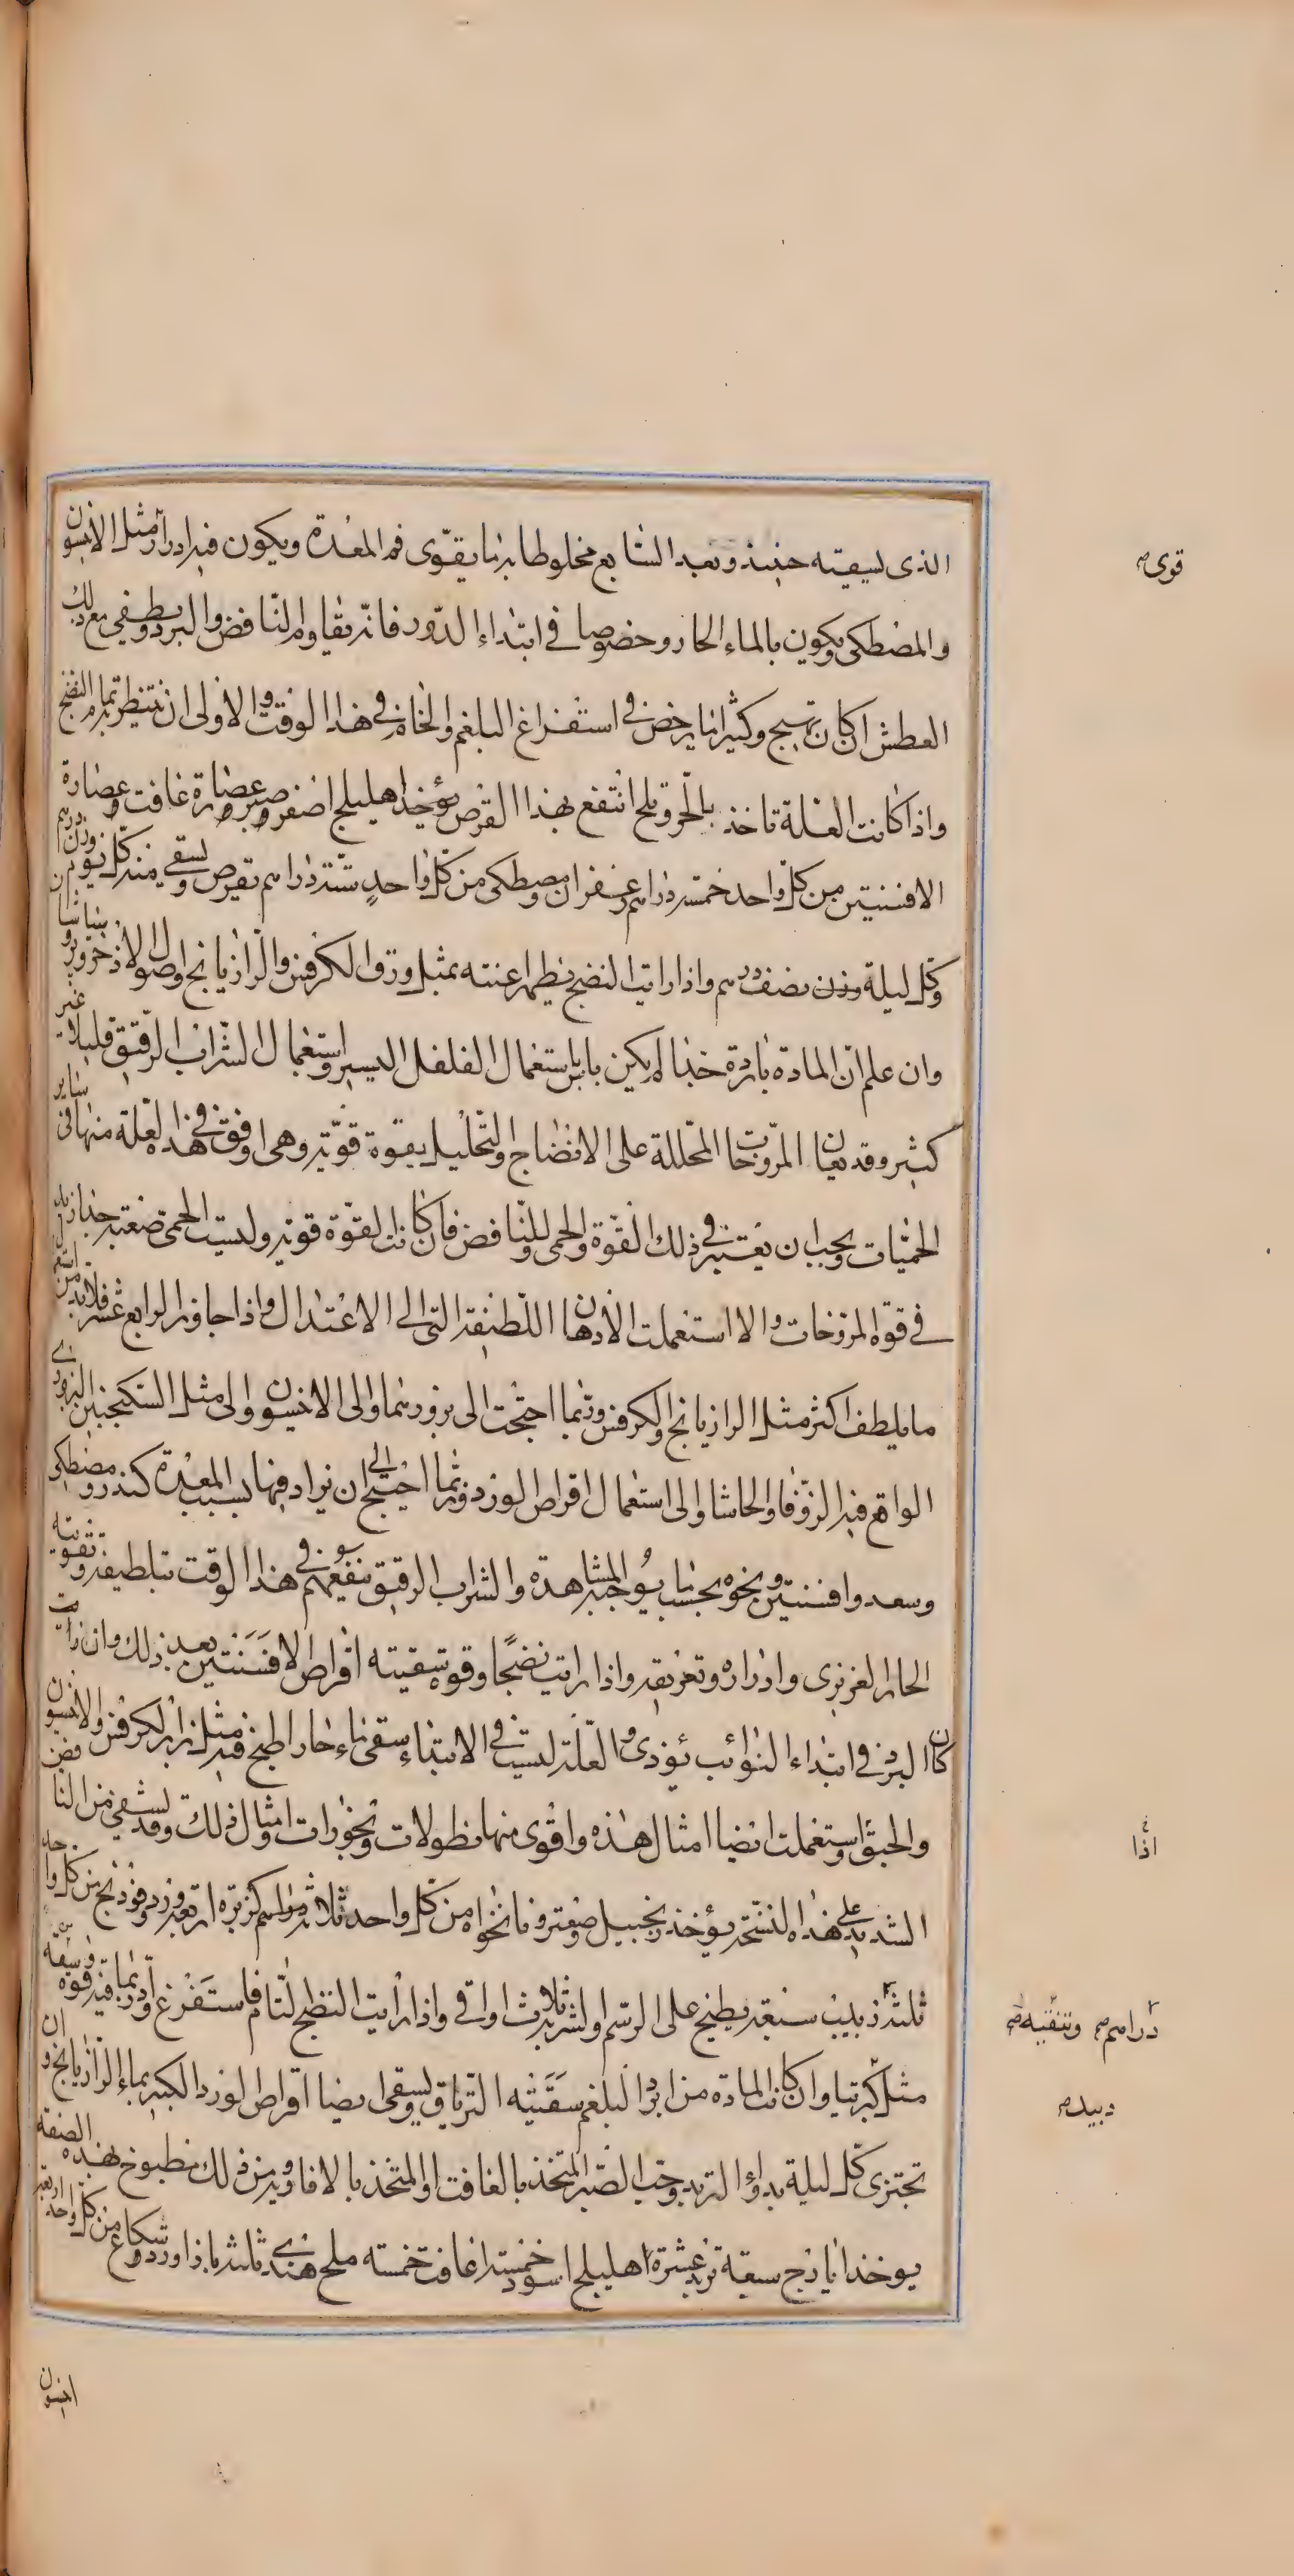 الذى لسيقيته حينئذ وبعد السابع مخلوطا بما يقوى فم المعدة ويكون فيه ادرار مثل الانيسون
والمصطكى ويكون بالماء الحار وخصوصا فى ابتداء الدور فانه يقاوم النافض والبرد ويطفى مع ذلك
العطش ان كان يهيج وكثيرا ما يرخص فى استفراغ البلغم والخام فى هذا الوقت والاولى ان ينتظر تمام النضج
واذا كانت العلة تاخذ بالحرقة انتفع بهذا القرص يؤخذ اهليلج اصفر وصبر وعصارة غافت وعصارة
الافسنتين من كل واحد خمسة دراهم زعفران ومصطكى من كل واحد ستة دراهم يقرص ويسقى منه كل يوم وزن درهم
وكل ليلة وزن نصف درهم واذا رايت النضج يظهر اعنته بمثل ورق الكرفس والرازيانج واصول الاذخر وبرشياوشان
وان علم ان المادة باردة جدا لم يكن باس باستعمال الفلفل اليسير واستعمال الشراب الرقيق قليلا غير
كثير وقد تعان المروخات المحللة على الانضاج والتحليل بقوة قوية وهى اوفق فى هذه العلة منها فى ساير
الحميات ويجب ان يعتبر فى ذلك القوة والحمى والنافض فان كانت القوة قوية وليست الحمى صعبة جدا زيد
فى قوة المروخات والا استعملت الادهان اللطيفة التى الى الاعتدال واذا جاوز الرابع عشر فلا بد من استعمال
ما يلطف اكثر مثل الرازيانج والكرفس وربما احتجت الى بزورهما والى الانيسون والى مثل السكنجبين البزورى
الواقع فيه الزوفا والحاشا والى استعمال اقراص الورد وربما احتيج الى ان يزاد فيها بسبب المعدة كندر ومصطكى
وسعد وافسنتين ونحوه بحسب ما يوجبه المشاهدة والشراب الرقيق ينفعهم فى هذا الوقت بتلطيفه وتقويته
الحار الغريزى وادراره وتعريقه واذا رايت نضجا وقوة سقيته اقراص الافسنتين بعد ذلك وان رايت
كان البرد فى ابتداء النوائب يؤذى والعلة ليست فى الابتداء سقى ماء حارا طبخ فيه مثل بزر الكرفس والانيسون
والحبق واستعملت ايضا امثال هذه واقوى منها نطولات وبخورات وامثال ذلك وقد يشفى من النافض
الشديد على هذه النسخة يؤخذ زنجبيل وصعتر ونانخواه من كل واحد ثلاثة دراهم كزبره اربعة ورد وفوذنج من كل واحد
ثلثة زبيب سبعة يطبخ على الرسم والشربة ثلاث اواقى واذا رايت النضج التام فاستفرغ وادر بما فيه قوة وسيقه
مثل كبرتيا وان كانت المادة من ابرد البلغم سقيته الترياق ويسقى ايضا اقراص الورد الكبير بماء الرازيانج وان
تجتزى كل ليلة بدواء التربد وحب الصبر المتخذ بالغافت او المتخذ بالافاويه ومن ذلك مطبوخ بهذه الصفة
يوخذ ايارج سبعة تربد عشرة اهليلج اسود خمسة غافت خمسة ملح هندى ثلثة باذاورد وشكاع من كل واحد اربعة
انيسون
قوى
اذا
دراهم وتنقيه
دبيد